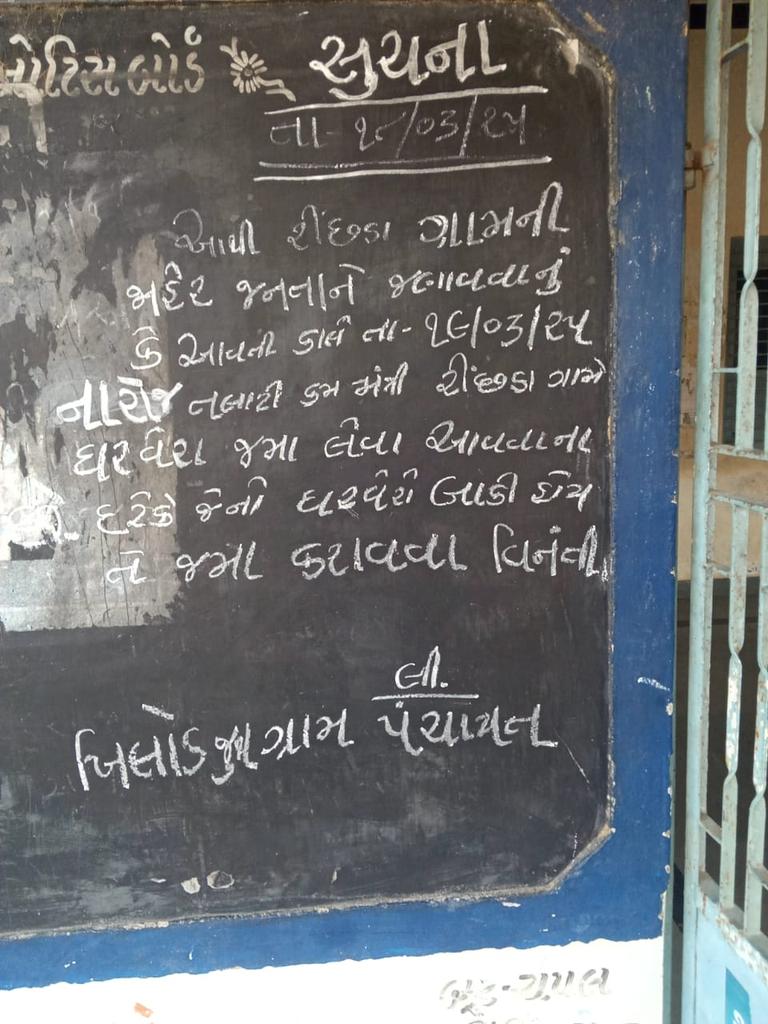 નોટિસ બોર્ડ
સુચના
તા- ૧૮/૦૩/૨૫
આથી રીંછડા ગ્રામની
જાહેર જનતાને જણાવવાનું
કે આવતી કાલે તા- ૧૯/૦૩/૨૫
નારોજ તલાટી કમ મંત્રી રીંછડા ગામે
ઘરવેરા જમા લેવા આવવાના
દરેકે જેની ઘરવેરો બાકી હોય
તે જમા કરાવવા વિનંતી.
લી.
ગ્રામ પંચાયત
બૂટ-ચપલ